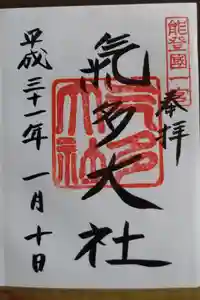 能登國一宮
奉拝
氣多大社
平成三十一年一月十日